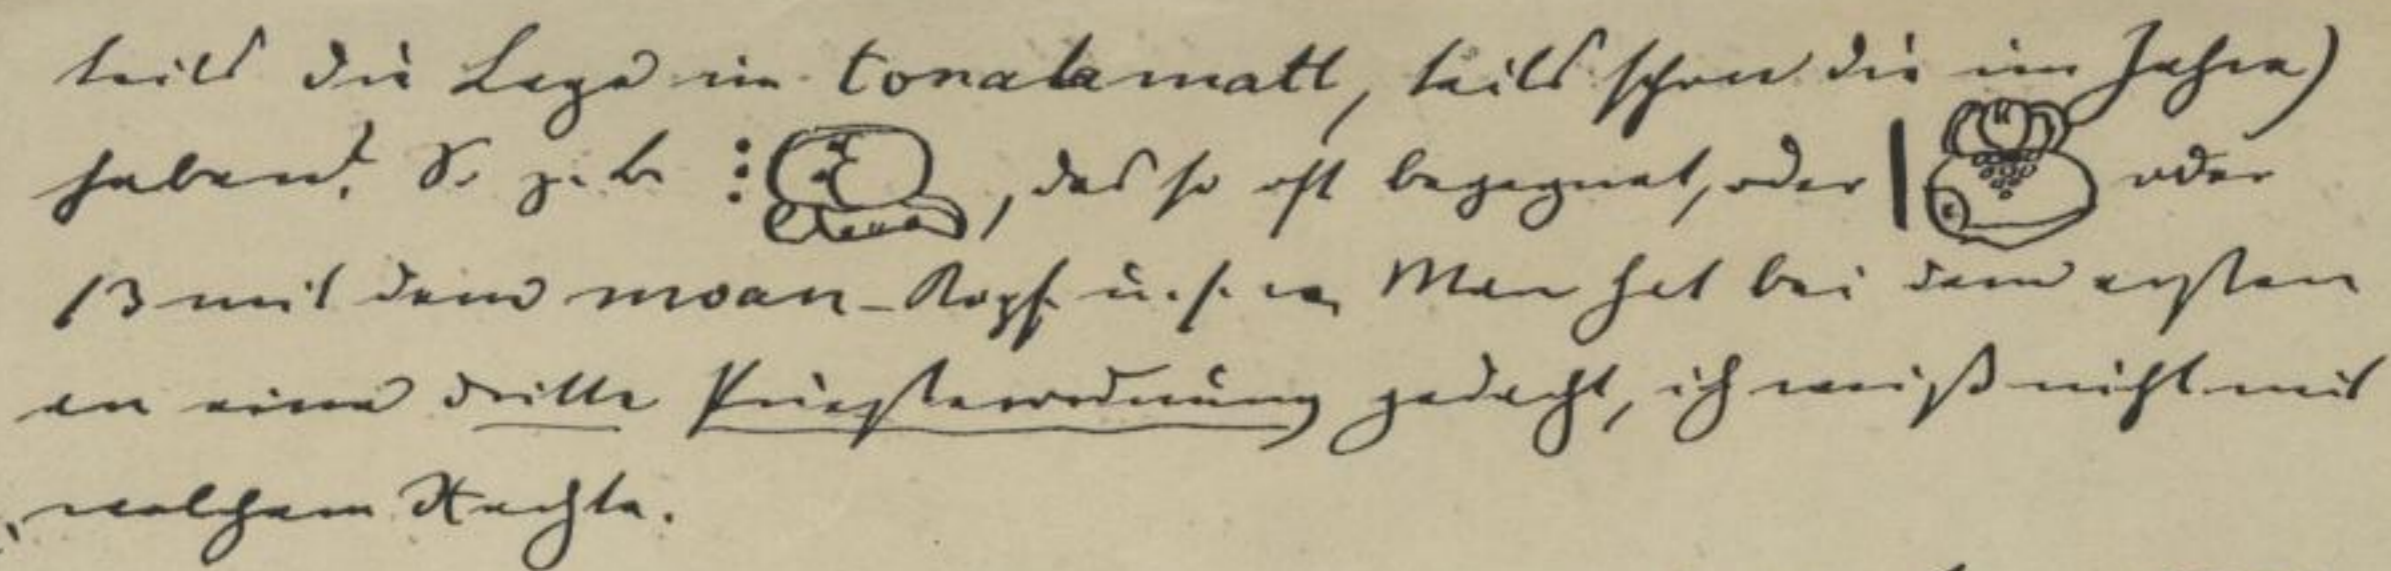 teils die Lage im tonalamatl, teils schon die im Jahre)
haben? So z. b. , das so oft begegnet, oder oder
13 mit dem moan-Kopf u. s. w. Man hat bei dem ersten
an eine dritte Priesterordnung gedacht, ich weiß nicht mit
welchem Rechte.